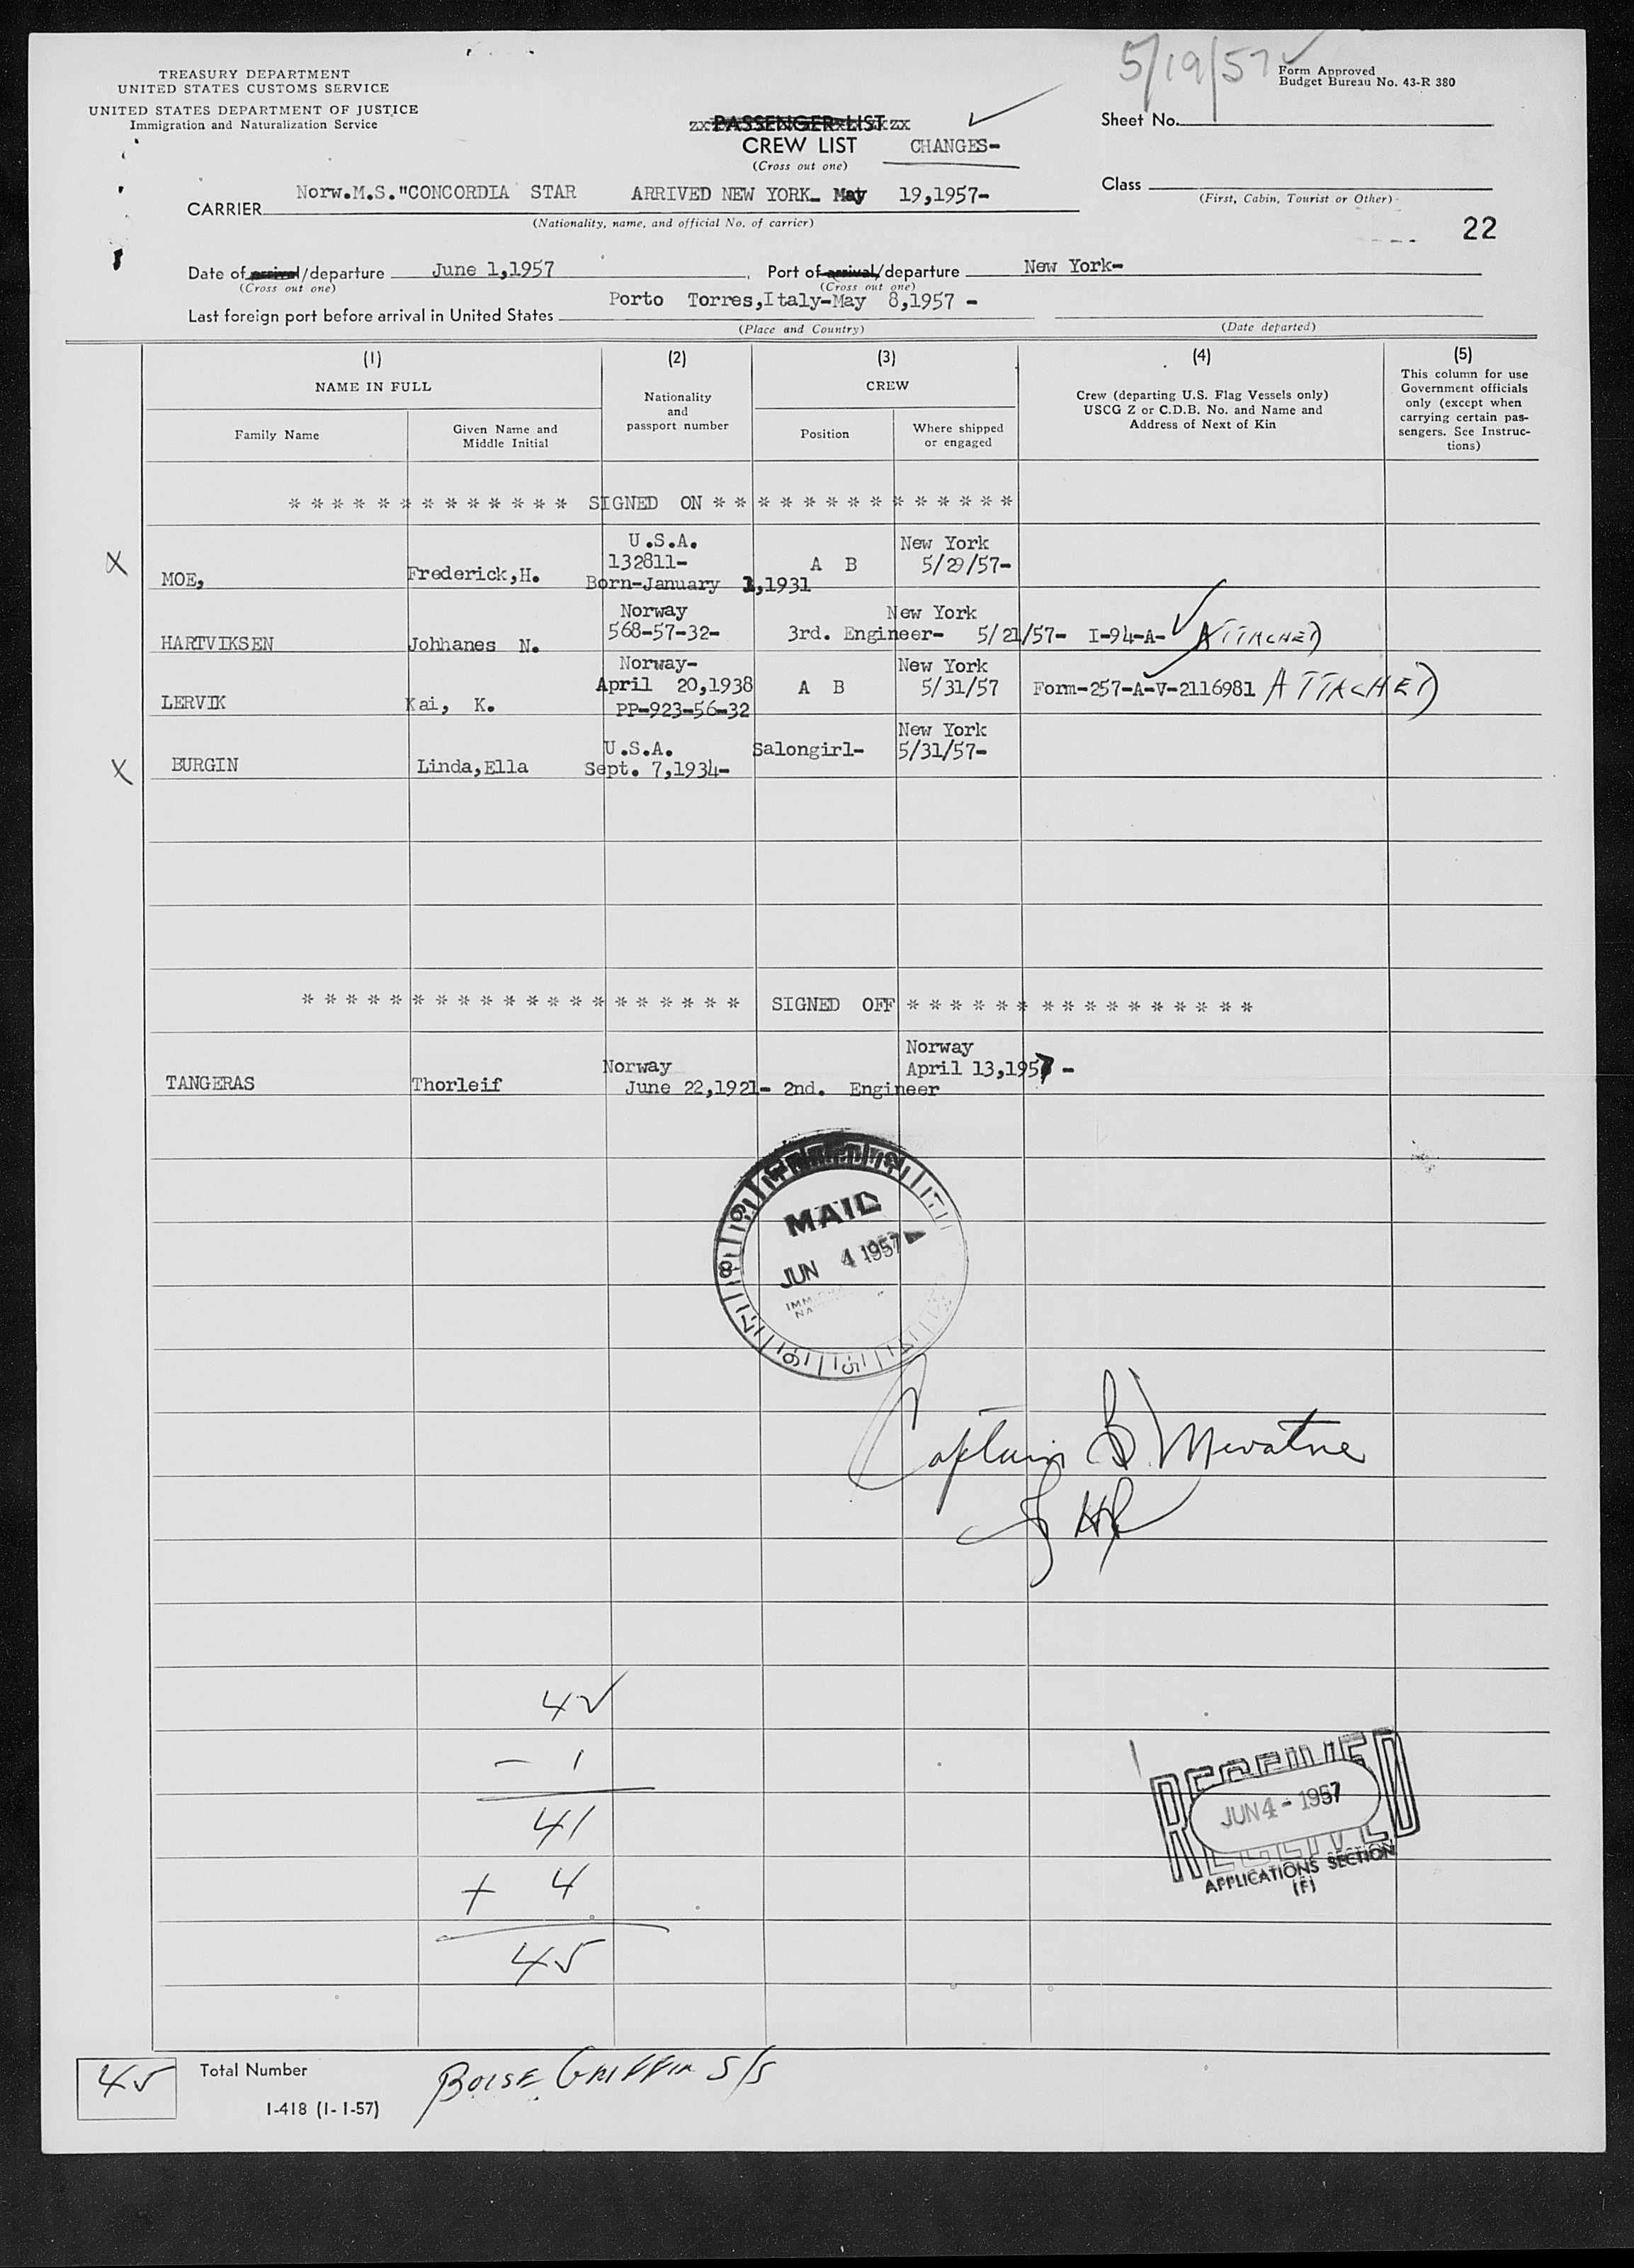 5/19/57
TREASURY DEPARTMENT
UNITED STATES CUSTOMS SERVICE
UNITED STATES DEPARTMENT OF JUSTICE
Immigration and Naturalization Service
Form Approved
Budget Bureau No. 43-R 380
PASSENGER LIST
CREW LIST CHANGES-
(Cross out one)
Sheet No.
Class
(First, Cabin, Tourist or Other)
22
CARRIER Norw.M.S."CONCORDIA STAR ARRIVED NEW YORK- May 19,1957-
(Nationality, name, and official No. of carrier)
Date of arrival/departure June 1,1957 Port of arrival/departure New York-
(Cross out one) (Cross out one)
Last foreign port before arrival in United States Porto Torres,Italy-May 8,1957 -
(Place and Country) (Date departed)
(1) (2) (3) (4) (5)
NAME IN FULL
Family Name
Given Name and
Middle Initial
Nationality
and
passport number
CREW
Position
Where shipped
or engaged
Crew (departing U.S. Flag Vessels only)
USCG Z or C.D.B. No. and Name and
Address of Next of Kin
This column for use
Government officials
only (except when
carrying certain pas-
sengers. See Instruc-
tions)
* * * * * * * * * * * * * SIGNED ON * * * * * * * * * * * * * *
U.S.A. New York
X 132811- A B 5/29/57-
MOE, Frederick,H. Born-January 1,1931
Norway New York
568-57-32- 3rd. Engineer- 5/21/57- I-94-A- ATTACHED
HARTVIKSEN Johhanes N.
Norway- New York
April 20,1938 A B 5/31/57 Form-257-A-V-2116981 ATTACHED
LERVIK Kai, K. PP-923-56-32
New York
U.S.A. Salongirl- 5/31/57-
X BURGIN Linda,Ella Sept. 7,1934-
* * * * * * * * * * * * * * * * * * * * SIGNED OFF * * * * * * * * * * * * * * * *
Norway
Norway April 13,1957 -
TANGERAS Thorleif June 22,1921- 2nd. Engineer
MAIL
JUN 4 1957
Captain
42
- 1
41
+ 4
45
RECEIVED
JUN 4 - 1957
APPLICATIONS SECTION
(F)
45 Total Number
I-418 (1-1-57)
BOISE GRIFFIN S/S